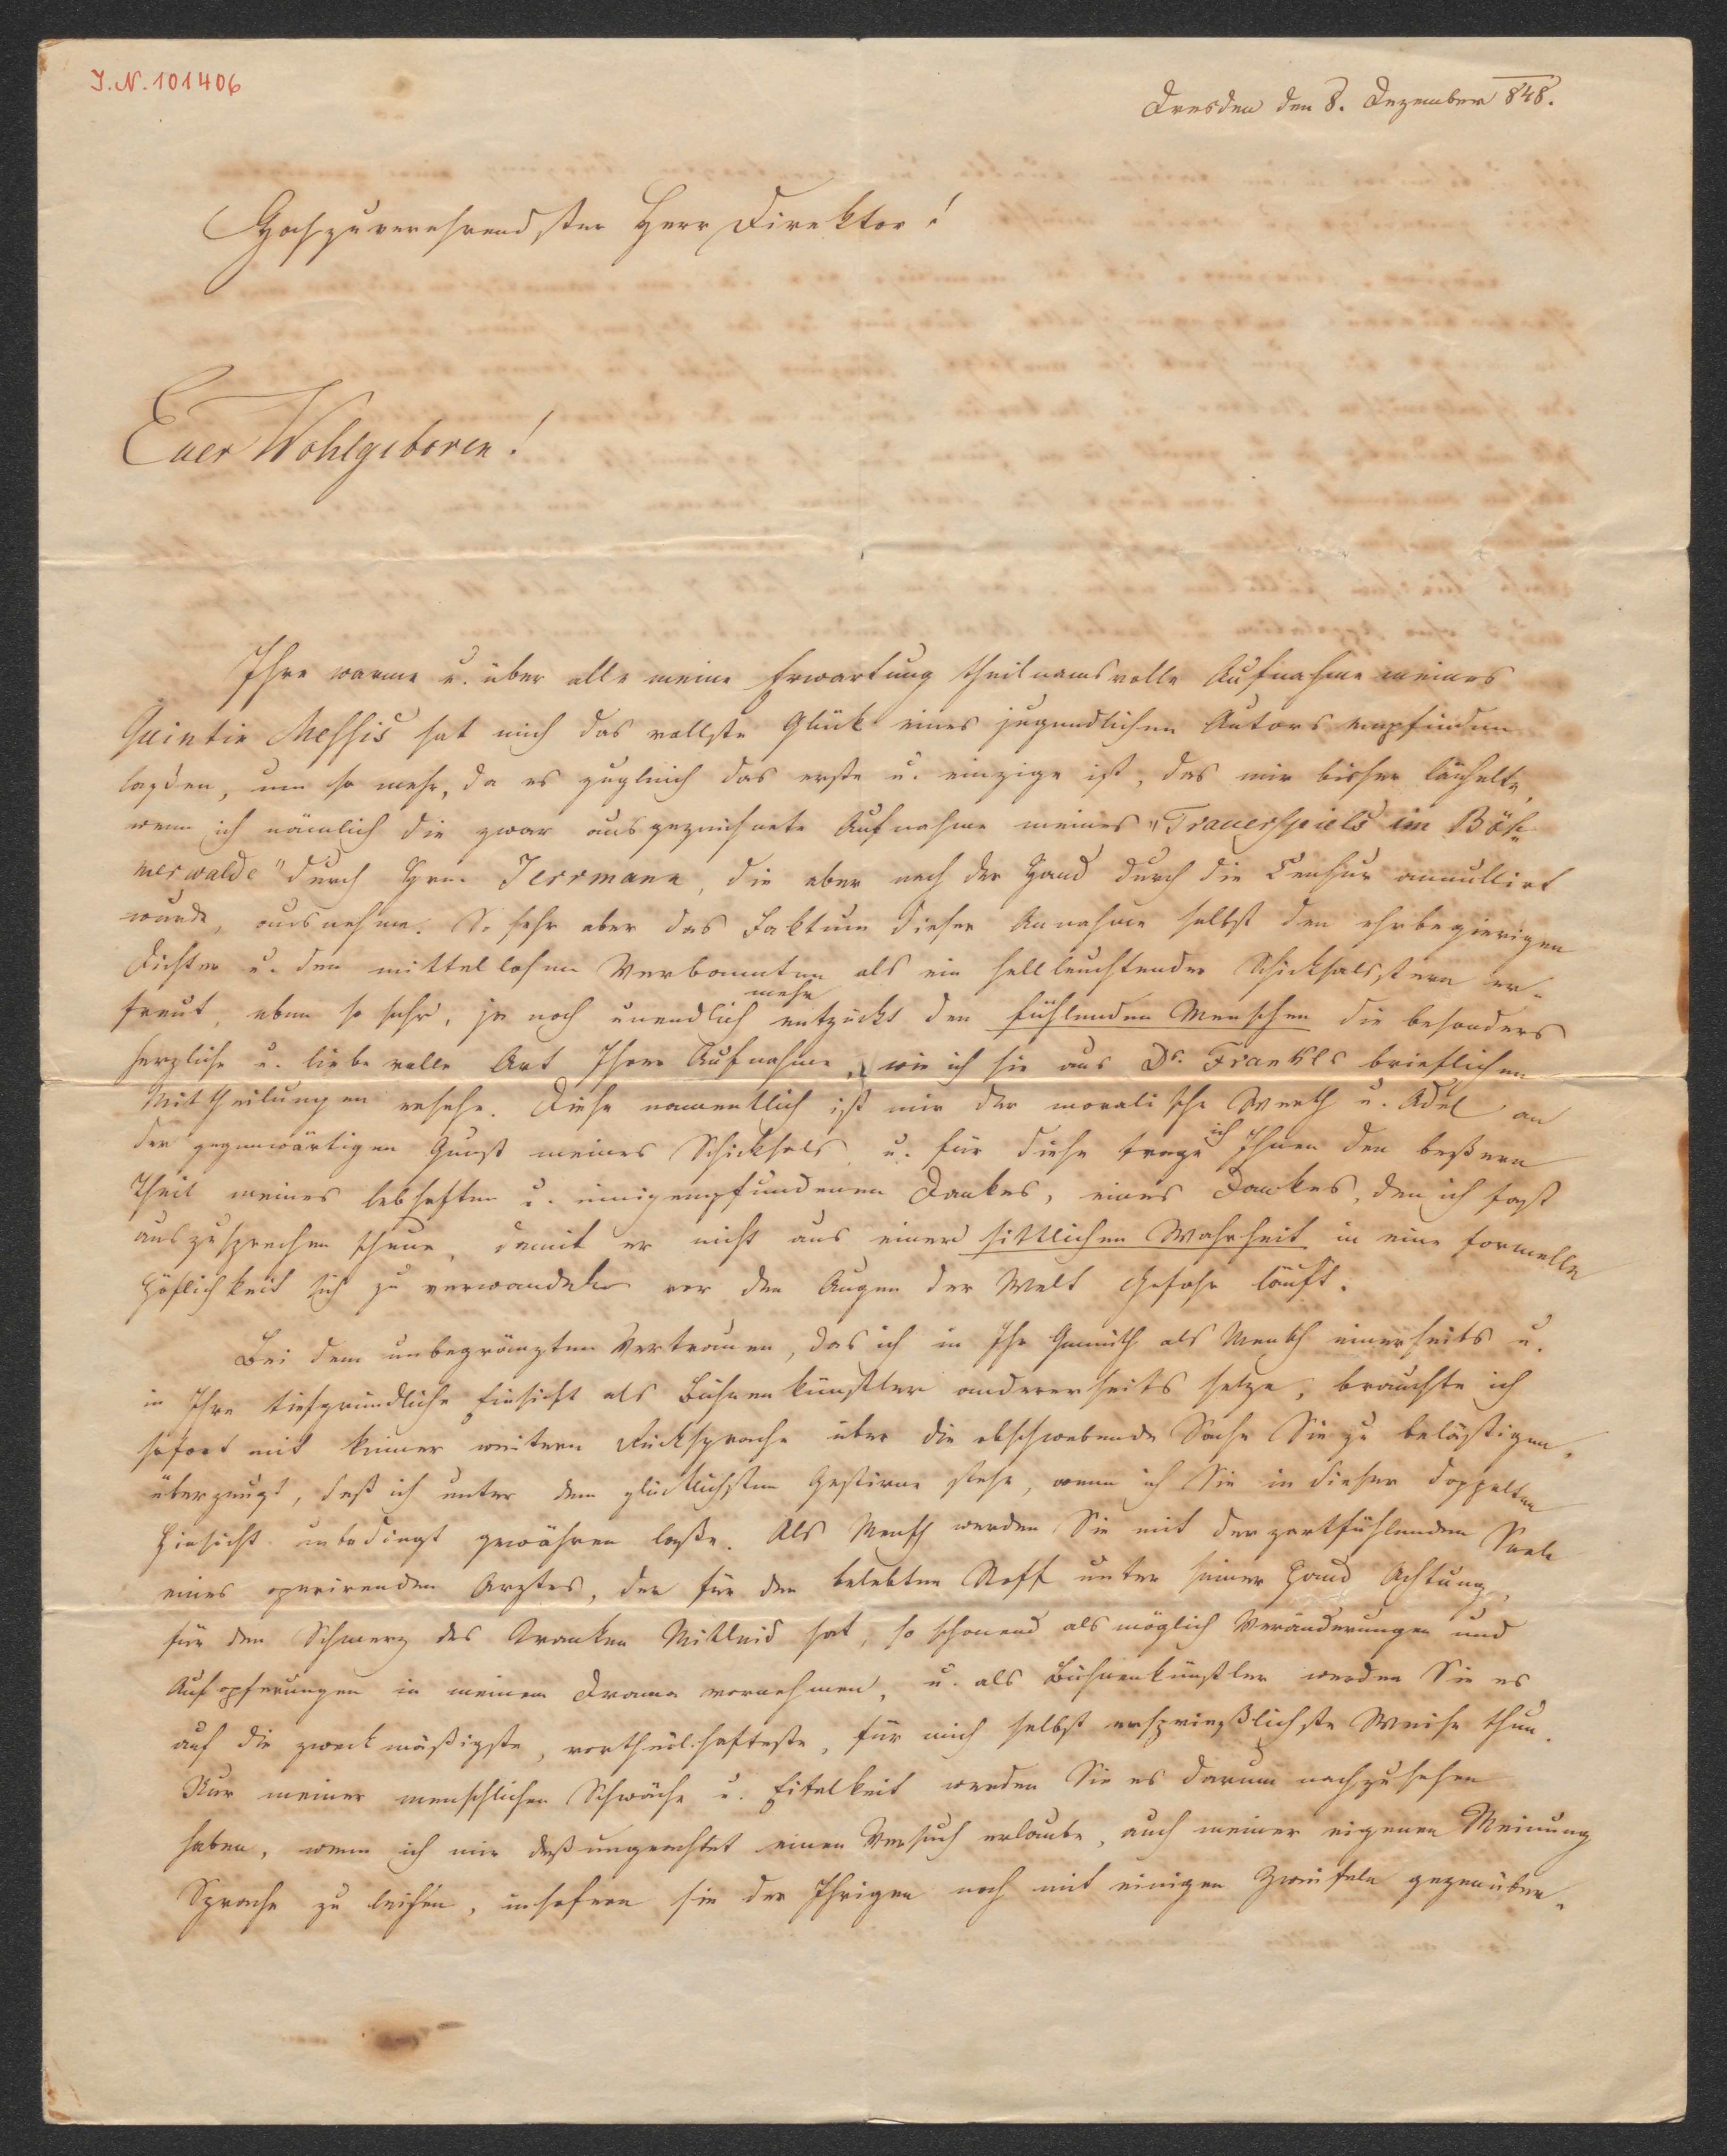 J.N. 101406
Dresden den 8. Dezember 848.
Hochzuverehrendster Herr Direktor!
Euer Wohlgeboren!
Ihre warme u. über alle meine Erwartung theilnamsvolle Aufnahme meines
Quintin Messis hat mich das vollste Glük eines jugendlichen Autors empfinden
lassen, um so mehr, da es zugleich das erste u. einzige ist, das mir bisher lächelte,
wenn ich nämlich die zwar ausgezeichnete Aufnahme meines "Trauerspiels im Böh-
merwalde" durch Hrn. Jerrmann, die aber nach der Hand durch die Censur annullirt
wurde, ausnehme. So sehr aber das Faktum dieser Annahme selbst den ehrbegierigen
Dichter u. den mittellosen Verbannten als ein hellleuchtender Schicksalsstern er-
freut, eben so sehr, ja noch unendlich mehr entzückt den fühlenden Menschen die besonders
herzliche u. liebevolle Art Ihrer Aufnahme, wie ich sie aus Dr. Frankls brieflichen
Mittheilungen ersehe. Diese namentlich ist mir der moralische Werth u. Adel an
der gegenwärtigen Gunst meines Schicksals u. für diese trage ich Ihnen den beßern
Theil meines lebhaften u. innigempfundenen Dankes, eines Dankes, den ich fast
auszusprechen scheue, damit er nicht aus einer sittlichen Wahrheit in eine formelle
Höflichkeit sich zu verwandeln vor den Augen der Welt Gefahr läuft.
Bei dem unbegränzten Vertrauen, das ich in Ihr Gemüth als Mensch einerseits u.
in Ihre tiefgründliche Einsicht als Bühnenkünstler andererseits setze, brauchte ich
sofort mit keiner weitern Rücksprache über die obschwebende Sache Sie zu belästigen,
überzeugt, daß ich unter dem glücklichsten Gestirne stehe, wenn ich Sie in dieser doppelten
Hinsicht unbedingt gewähren laße. Als Mensch werden Sie mit der zartfühlenden Seele
eines operirenden Arztes, der für den belebten Stoff unter seiner Hand Achtung,
für den Schmerz des Kranken Mitleid hat, so schonend als möglich Veränderungen und
Aufopferungen in meinem Drama vornehmen, u. als Bühnenkünstler werden Sie es
auf die zweckmäßigste, vortheilhafteste, für mich selbst ersprießlichste Weise thun.
Nur meiner menschlichen Schwäche u. Eitelkeit werden Sie es darum nachzusehen
haben, wenn ich mir deßungeachtet einen Versuch erlaube, auch meiner eigenen Meinung
Sprache zu leihen, insofern sie der Ihrigen noch mit einigen Zweifeln gegenüber-